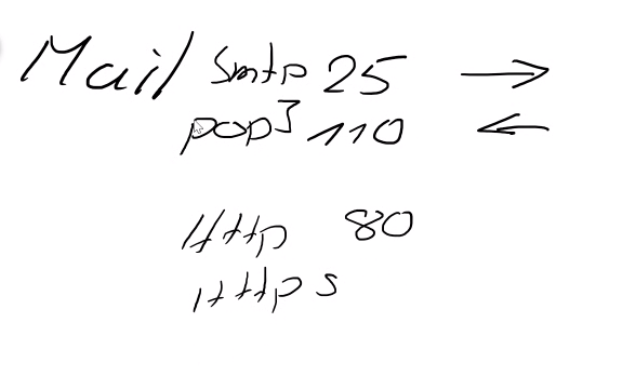 Mail smtp 25 →
pop3 110 ←
Http 80
Https